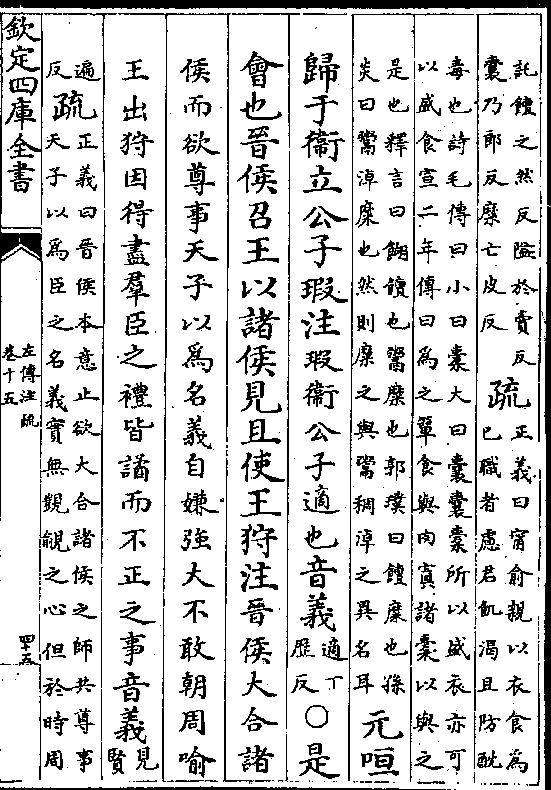 託饘之然反隘於賣反
囊乃郎反糜亡皮反
疏
正義曰甯俞親以衣食為
已職者慮君飢渴且防酖
毒也詩毛傳曰小曰橐大曰囊囊橐所以盛衣亦可
以盛食宣二年傳曰為之簞食與肉寘諸橐以與之
是也釋言曰餬饘也鬻糜也郭璞曰饘糜也孫
炎曰鬻淖糜也然則糜之與鬻稠淖之異名耳
元咺
歸于衞立公子瑕注瑕衞公子適也音義
適丁
歷反
○是
會也晉侯召王以諸侯見且使王狩注晉侯大合諸
侯而欲尊事天子以為名義自嫌強大不敢朝周喻
王出狩因得盡羣臣之禮皆譎而不正之事音義
見
賢
遍
反
疏
正義曰晉侯本意止欲大合諸侯之師共尊事
天子以爲臣之名義實無覬覦之心但於時周
欽定四庫全書
左傳注疏
卷十五
四十五